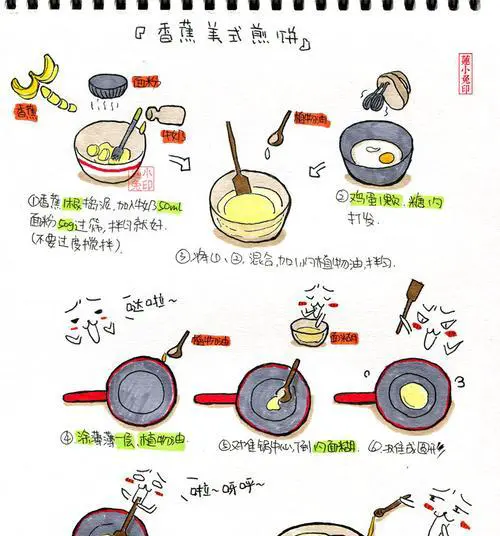 『香蕉美式煎饼』
蓮小兔印
香蕉
面粉
牛奶
植物油
小兔印
①香蕉1根捣泥,加牛奶50ml
面粉50g过筛,拌匀就好.
(不要过度搅拌)
②鸡蛋1颗.糖1勺
打发.
③将①、②.混合,加1勺植物油,拌匀.
哒啦~
植物油
面糊
④涂薄薄一层,植物油.
⑤对准锅中心,倒1勺面糊.
成圆形
啦~呀呼~